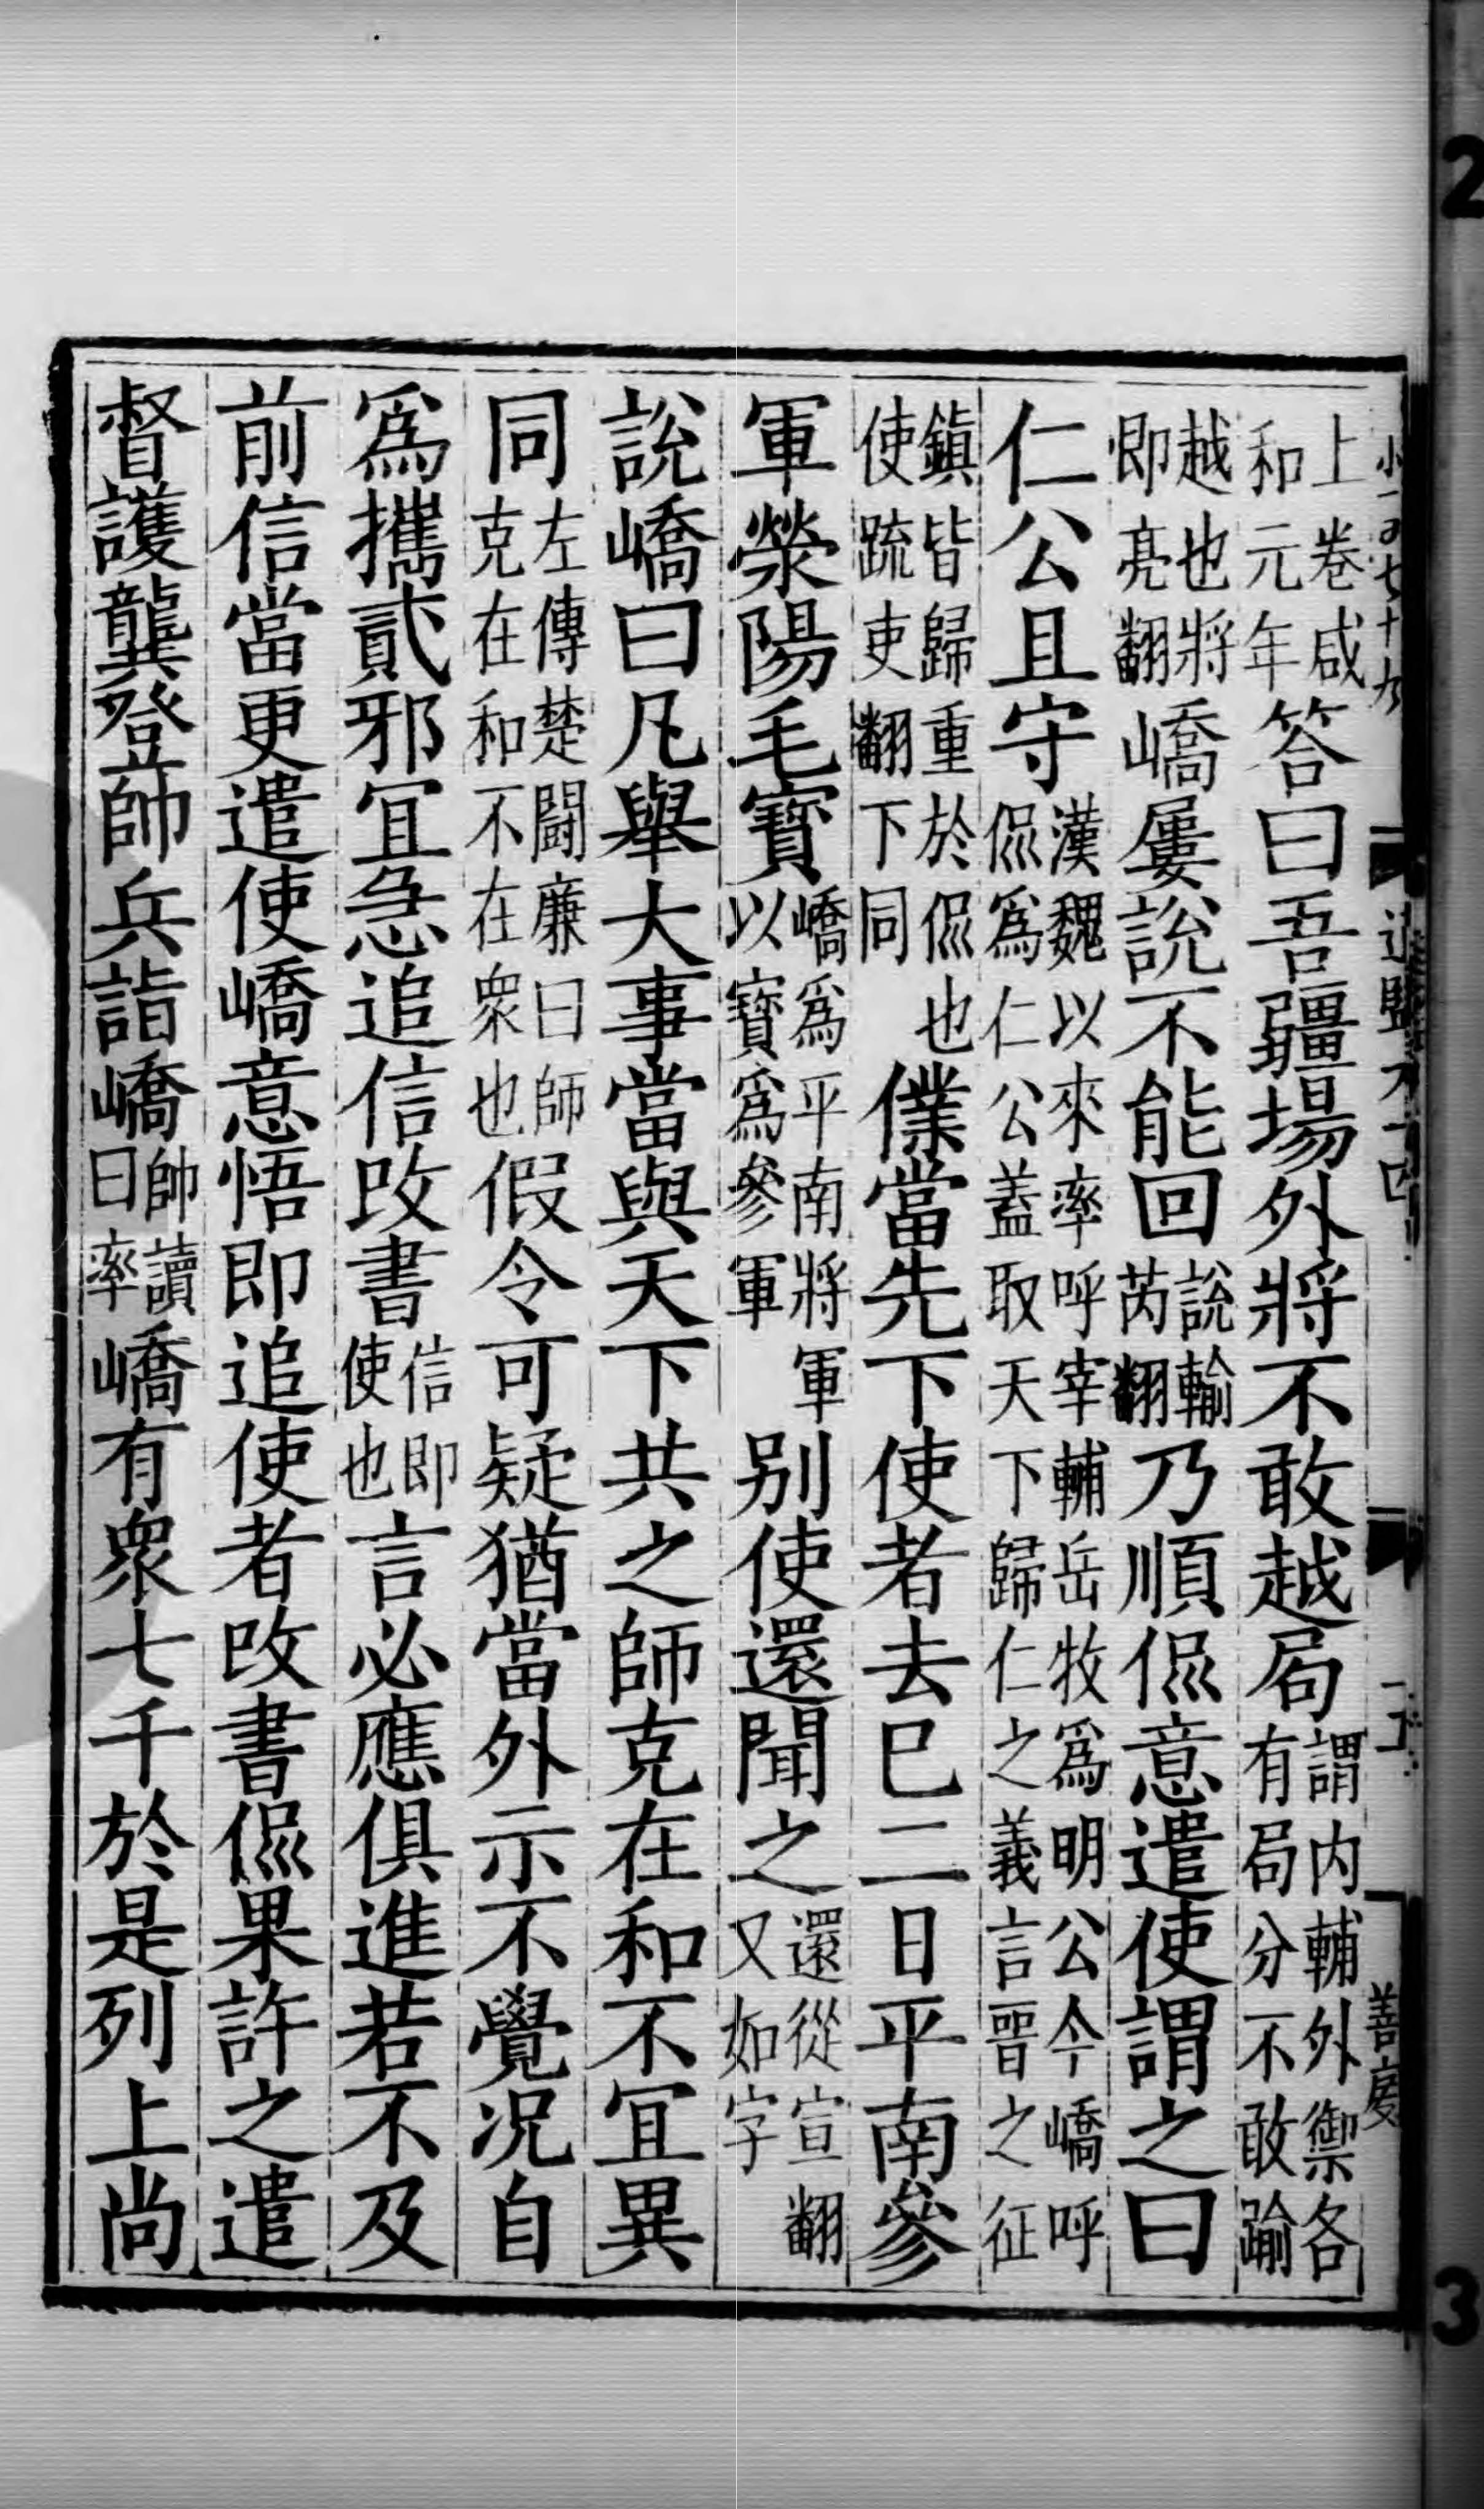 上卷咸和元年答曰吾疆場外將不敢越局謂内輔外禦各有局分不敢踰
越也將即亮翻嶠屢說不能回說輸芮翻乃順侃意遣使謂之曰
仁公且守漢魏以來率呼宰輔岳牧爲明公今嶠呼侃爲仁公蓋取天下歸仁之義言晉之征
鎮皆歸重於侃也使疏吏翻下同僕當先下使者去巳二日平南參
軍滎陽毛寶嶠爲平南將軍以寶爲參軍别使還聞之還從宣翻又如字
說嶠曰凡舉大事當與天下共之師克在和不宜異
同左傳楚鬬廉曰師克在和不在衆也假令可疑猶當外示不覺况自
爲攜貳邪宜急追信改書信即使也言必應俱進若不及
前信當更遣使嶠意悟即追使者改書侃果許之遣
督護龔登帥兵詣嶠帥讀曰率嶠有衆七千於是列上尚
善慶
2
3